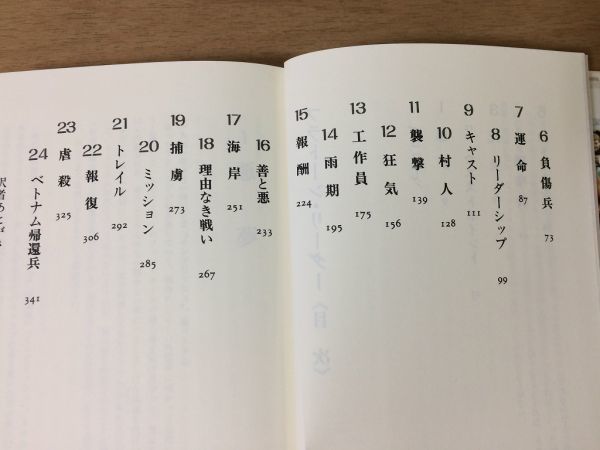 6 負傷兵 73
7 運命 87
8 リーダーシップ 99
9 キャスト 111
10 村人 128
11 襲撃 139
12 狂気 156
13 工作員 175
14 雨期 195
15 報酬 224
16 善と悪 233
17 海岸 251
18 理由なき戦い 267
19 捕虜 273
20 ミッション 285
21 トレイル 292
22 報復 306
23 虐殺 325
24 ベトナム帰還兵 341